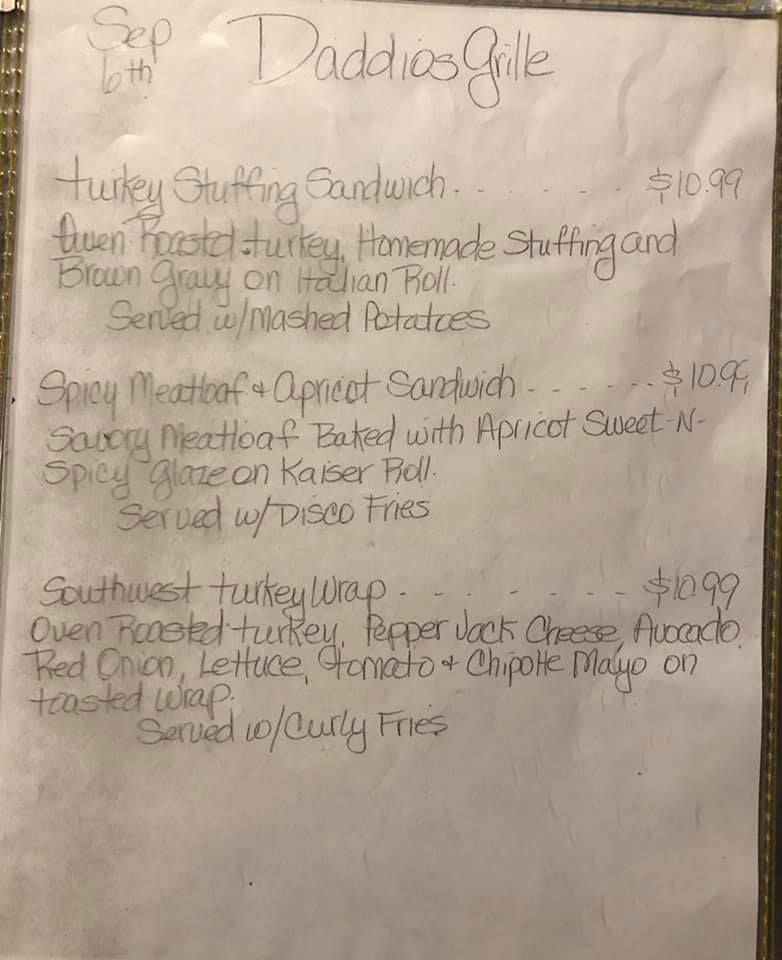 Sep Daddios Grille
6th
turkey Stuffing Sandwich. - - - - - $10.99
Oven Roasted turkey, Homemade Stuffing and
Brown Gravy on Italian Roll.
Served w/Mashed Potatoes
Spicy Meatloaf & Apricot Sandwich - - - - - - $10.99
Savory Meatloaf Baked with Apricot Sweet-N-
Spicy Glaze on Kaiser Roll.
Served w/Disco Fries
Southwest turkey Wrap - - - - - - - $10.99
Oven Roasted turkey, Pepper Jack Cheese, Avocado,
Red Onion, Lettuce, tomato & Chipotle Mayo on
toasted Wrap.
Served w/Curly Fries